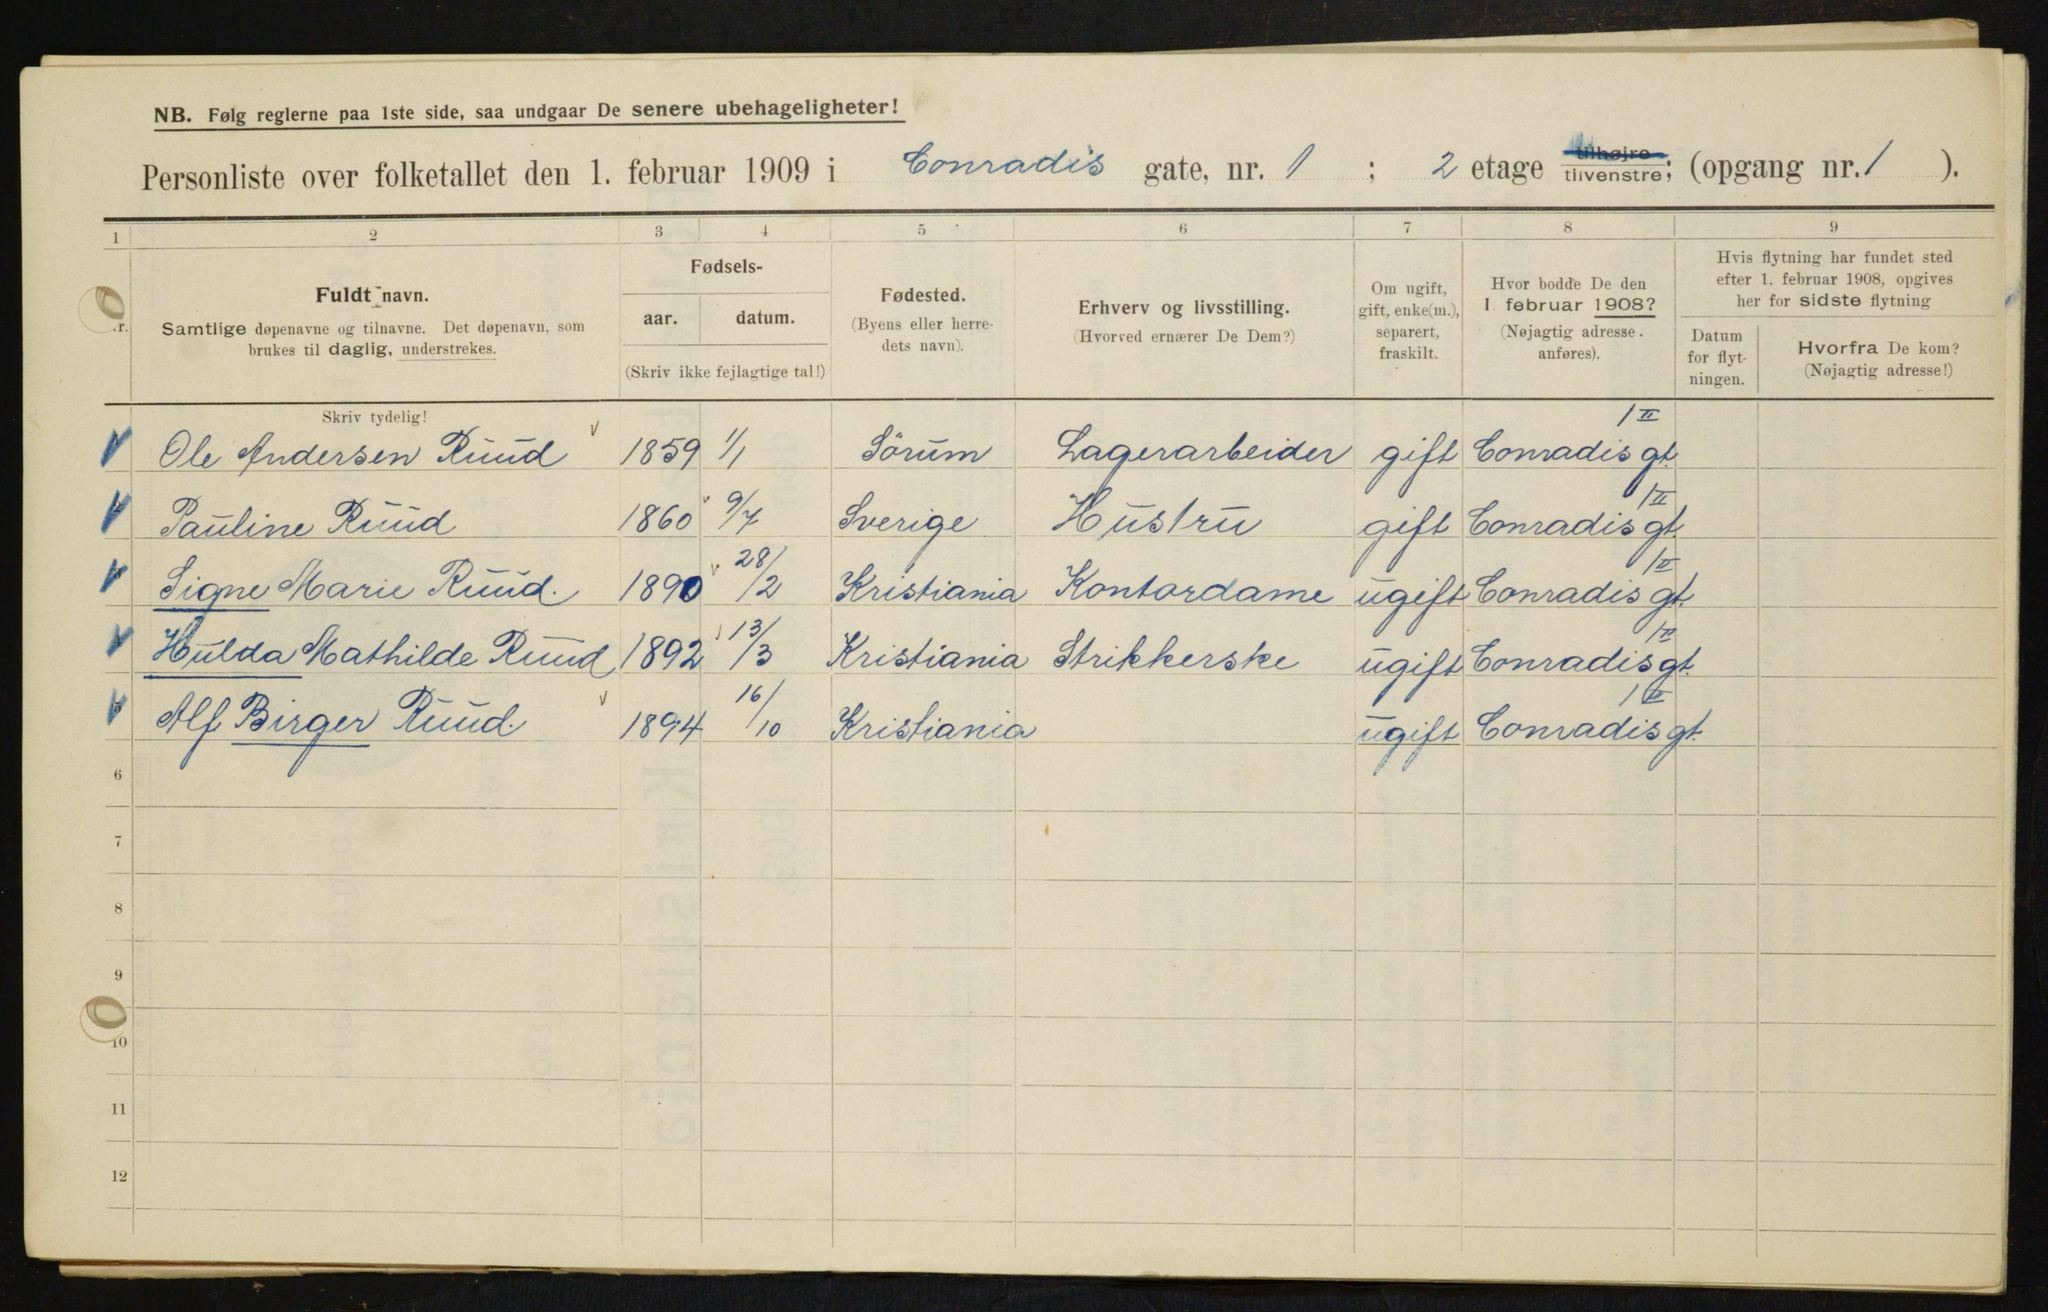 NB. Følg reglerne paa 1ste side, saa undgaar De senere ubehageligheter!
Personliste over folketallet den 1. februar 1909 i Conradis gate, nr. 1 ; 2 etage tilhøjre tilvenstre; (opgang nr. 1 ).
1 2 3 4 5 6 7 8 9
Nr.
Fuldt navn.
Samtlige døpenavne og tilnavne. Det døpenavn, som
brukes til daglig, understrekes.
Fødsels-
aar. datum.
(Skriv ikke fejlagtige tal!)
Fødested.
(Byens eller herre-
dets navn).
Erhverv og livsstilling.
(Hvorved ernærer De Dem?)
Om ugift,
gift, enke(m.),
separert,
fraskilt.
Hvor bodde De den
1. februar 1908?
(Nøjagtig adresse
anføres).
Hvis flytning har fundet sted
efter 1. februar 1908, opgives
her for sidste flytning
Datum
for flyt-
ningen.
Hvorfra De kom?
(Nøjagtig adresse!)
Skriv tydelig!
Ole Andersen Ruud 1859 1/1 Sörum Lagerarbeider gift Conradis gt. 1 II
Pauline Ruud 1860 9/7 Sverige Hustru gift Conradis gt. 1 II
Signe Marie Ruud. 1890 28/2 Kristiania Kontordame ugift Conradis gt. 1 II
Hulda Mathilde Ruud 1892 13/3 Kristiania Strikkerske ugift Conradis gt. 1 II
Alf Birger Ruud. 1894 16/10 Kristiania ugift Conradis gt. 1 II
6
7
8
9
10
11
12